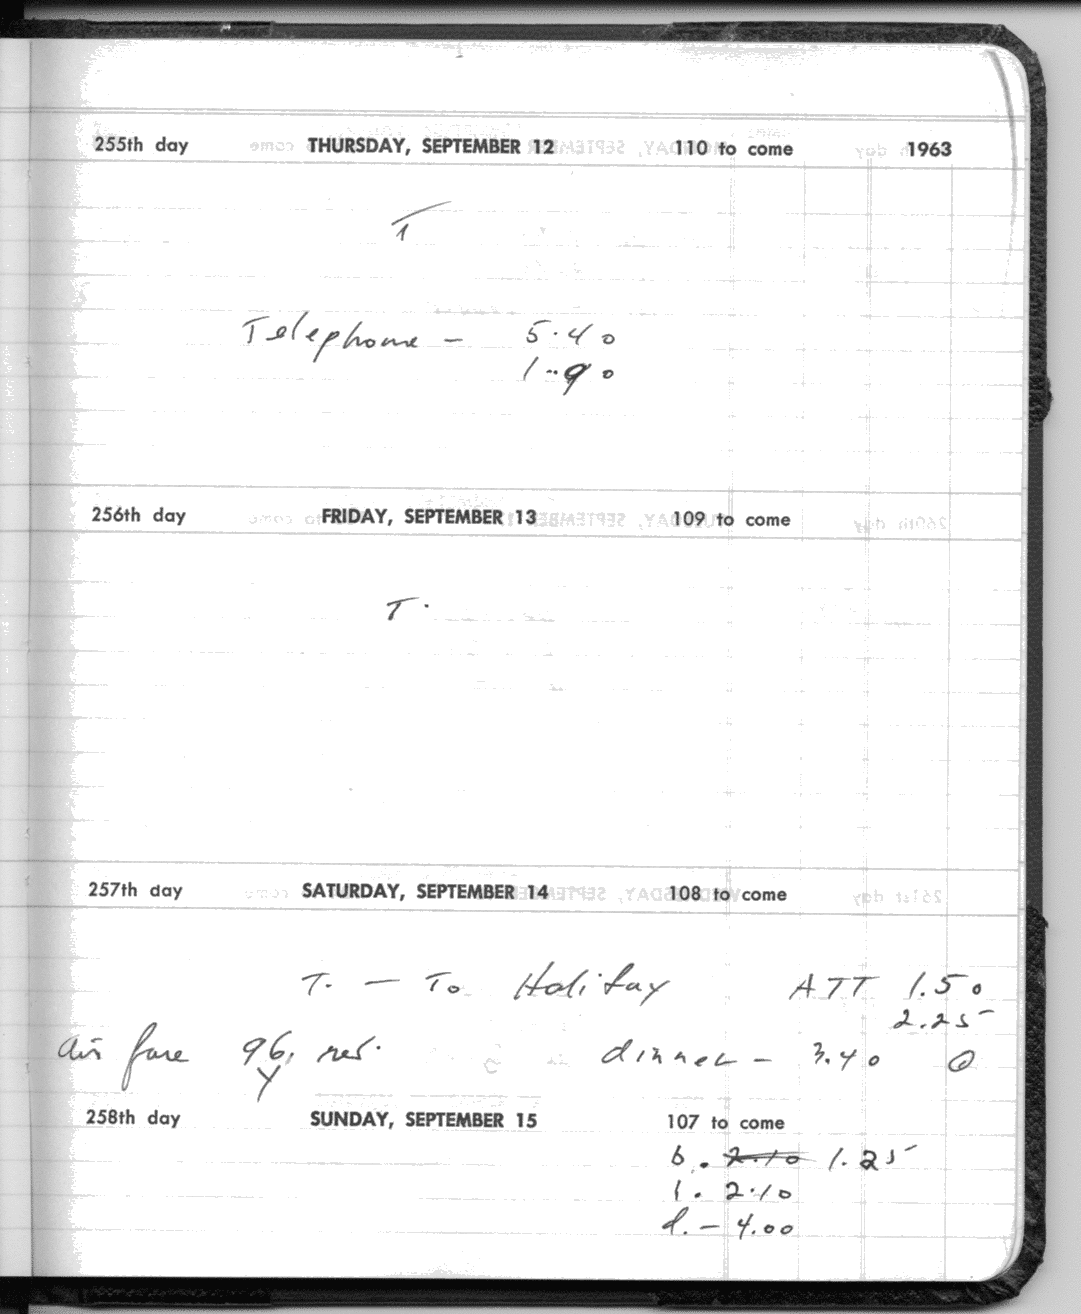 255th day THURSDAY, SEPTEMBER 12 110 to come 1963
T
Telephone - 5.40
1.90
256th day FRIDAY, SEPTEMBER 13 109 to come
T.
257th day SATURDAY, SEPTEMBER 14 108 to come
T. - To Holiday ATT 1.50
2.25
air fare 96, dinner - 3.40
258th day SUNDAY, SEPTEMBER 15 107 to come
b. 2.10 1.25
l. 2.10
d. - 4.00